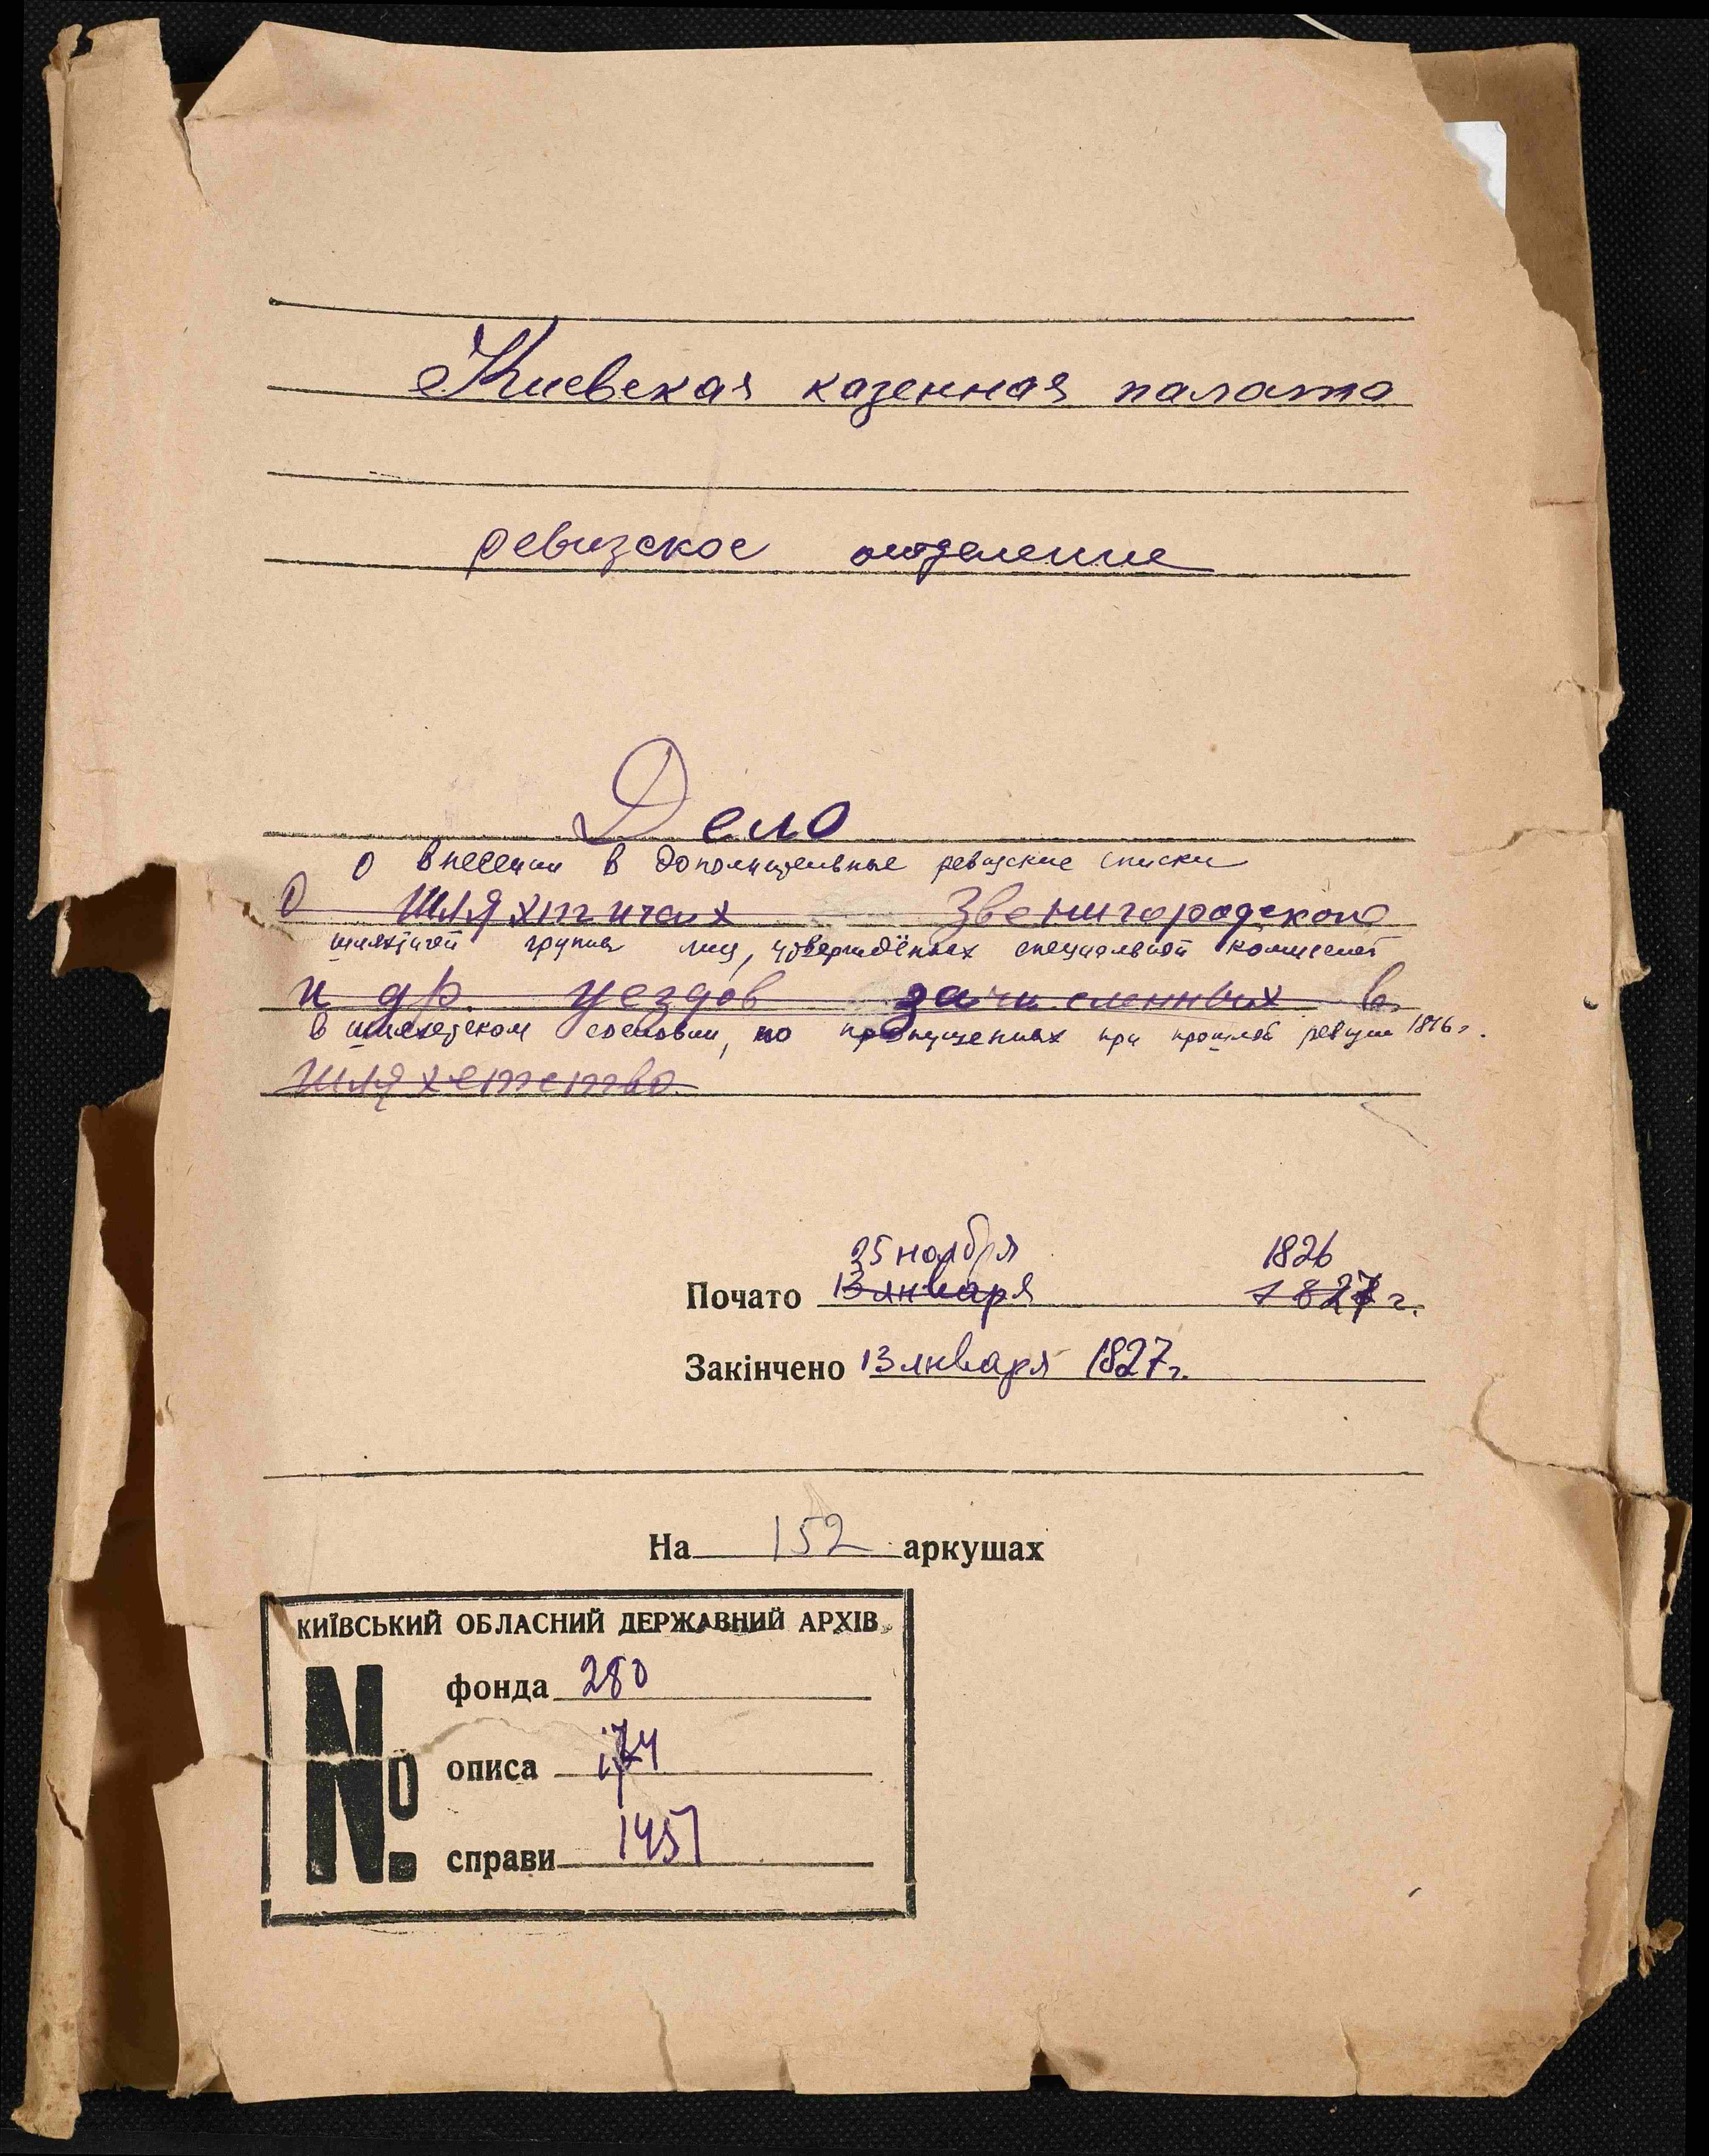 Киевская казенная палата
ревизское отделение
Дело
о внесении в дополнительные ревизские списки
О шляхтичах Звенигородского
шляхтичей группы лиц, утверждённых специальной комиссией
и др. уездов зачисленных в
в шляхетском сословии, но пропущенных при прошлой ревизии 1816 г.
шляхетство.
25 ноября 1826
Почато 13 января 1827 г.
Закінчено 13 января 1827 г.
На 152 аркушах
КИЇВСЬКИЙ ОБЛАСНИЙ ДЕРЖАВНИЙ АРХІВ
№
фонда 280
описа 174
справи 1451